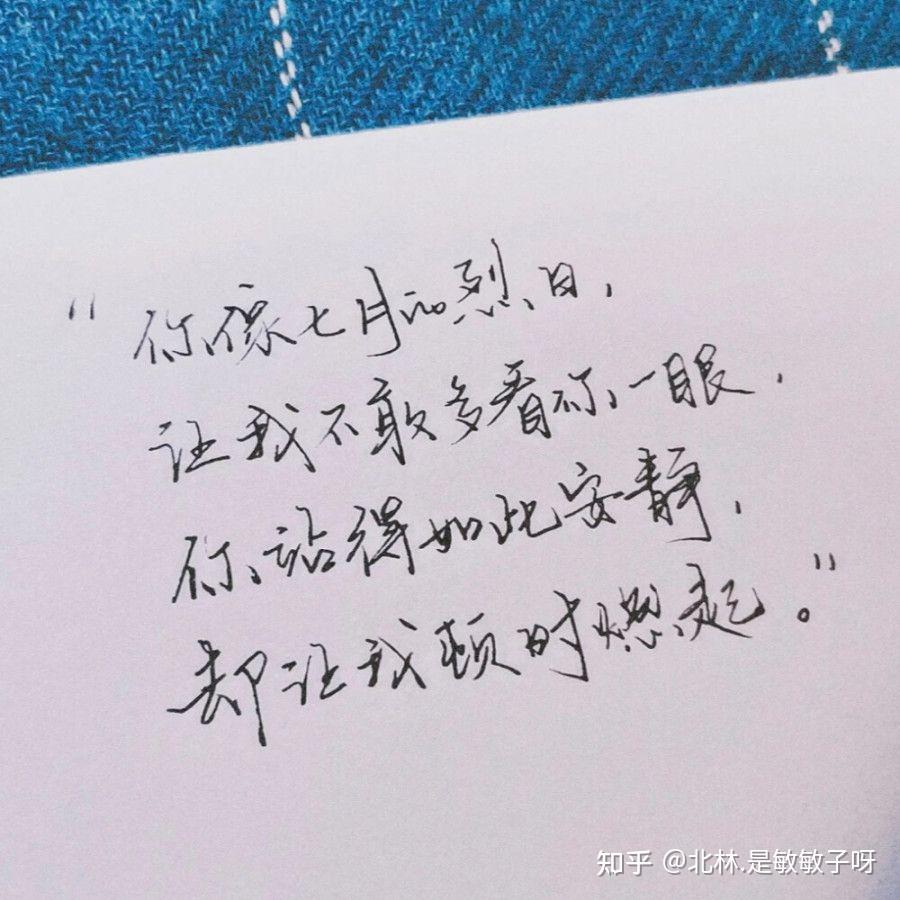 “你像七月的烈日,
让我不敢多看你一眼,
你站得如此安静,
却让我顿时燃起。”
知乎 @北林.是敏敏子呀